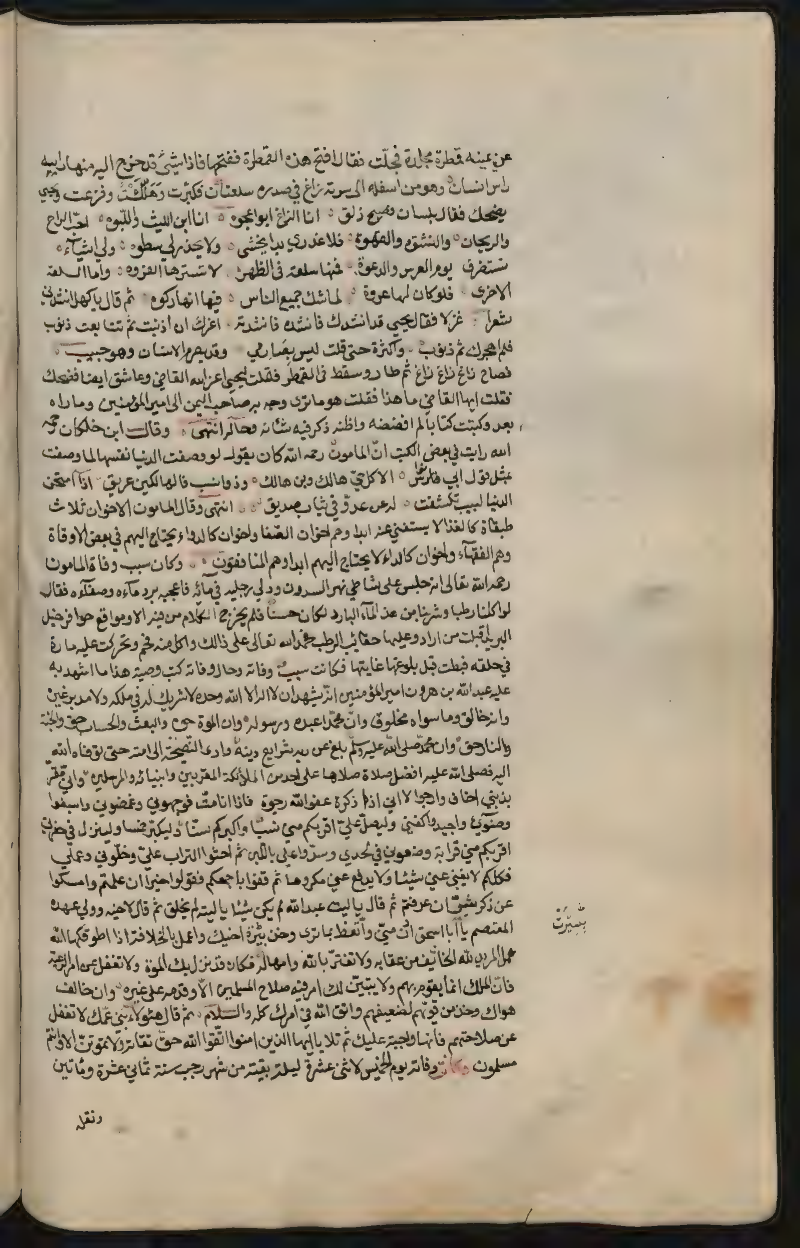 عن يمينه قمطرة مجلدة فجلت فقال افتح هذه القمطرة ففتحتها فاذا شئ قد خرج الي منها رايته
راس انسان وهو من اسفله الى سرته زاغ في صدره سلعتان فكبرت وهللت وفزعت ويحيى
يضحك فقال بلسان فصيح ذلق انا الزاغ ابو عجوه انا ابن الليث واللبوه احب الراح
والريحان والنشوة والقهوة فلا عدوى يدا يخشى ولا يحذر لي سطوه ولي اشياء
تستظرف يوم العرس والدعوة فمنها سلعة في الظهر لا تسترها الفروه واما السلعة
الاخرى فلو كان لها عروة لما شك جميع الناس فيها انها ركوه ثم قال يا كهل انشدني
شعرا غزلا فقال يحيى قد انشدك فانشده فانشدته اغرك ان اذنبت ثم تتابعت ذنوب
فلم اهجرك ثم ذنوب واكثرت حتى قلت ليس بصارمي وقد يصرم الانسان وهو حبيب
فصاح زاغ زاغ زاغ ثم طار وسقط في القمطر فقلت ليحيى اعز الله القاضي وعاشق ايضا فضحك
فقلت ايها القاضي ما هذا فقلت هو ما ترى وجه به صاحب اليمن الى امير المؤمنين وما راه
بعد وكتبت كتابا لم افضضه واظنه ذكر فيه شانه وحاله انتهى وقال ابن خلكان رحمه
الله رايت في بعض الكتب ان المامون رحمه الله كان يقول لو وصفت الدنيا نفسها لما وصفت
بمثل قول ابي نواس الا كل حي هالك وبن هالك وذو نسب في الهالكين عريق اذا امتحن
الدنيا لبيب تكشفت له عن عدو في ثياب صديق انتهى وقال المامون الاخوان ثلاث
طبقاة كالغذا لا يستغنى عنه ابدا وهم اخوان الصفا واخوان كالدواء يحتاج اليهم في بعض الاوقاة
وهم الفقهاء واخوان كالداء لا يحتاج اليهم ابدا وهم المنافقون وكان سبب وفاة المامون
رحمه الله تعالى انه جلس على شاطي نهر البدندون ودلى رجليه في مائه فاعجبه برد ماءه وصفاءه فقال
لو اكلنا رطبا وشربنا من هذا الماء البارد لكان حسنا فلم يخرج الكلام من فيه الا ومواقع حوافر خيل
البريد اقبلت من ازاد وعليها حقائب الرطب فحمد الله تعالى على ذالك واكل منه فحم وتحركت عليه مادة
في حلقه فبطت قبل بلوغها غايتها فكانت سبب وفاته وحال وفاته كتب وصية هذا ما اشهد به
عليه عبد الله بن هرون امير المؤمنين انه يشهد ان لا اله الا الله وحده لا شريك له في ملكه ولا مدبر غيره
وانه خالق وما سواه مخلوق وان محمدا عبده ورسوله وان الموة حق والبعث والحساب حق والجنة
والنار حق وان محمد صلى الله عليه وسلم بلغ عن ربه شرايع دينه وادى النصيحة الى امته حتى توفاه الله
اليه فصلى الله عليه افضل صلاة صلاها على احد من الملائكة المقربين وانبيائه والمرسلين واني مقر
بذنبي اخاف وارجوا الا اني اذا ذكرة عفو الله رجوة فاذا انا مت فوجهوني وغمضوني واسبغوا
وضوئي واجيدوا كفني وليصل علي اقربكم مني نسبا واكبركم سنا وليكبر خمسا ولينزل في حفرتي
اقربكم مني قرابة وضعوني في لحدي وسدوا علي باللبن ثم احثوا التراب علي وخلوني وعملي
فكلكم لا يغني عني شيئا ولا يدفع عني مكروها ثم قفوا باجمعكم فقولوا خيرا ان علمتم وامسكوا
عن ذكر شر ان عرفتم ثم قال يا ليت عبد الله لم يكن شيئا يا ليته لم يخلق ثم قال لاخيه وولي عهده
المعتصم يا ابا اسحق ادن مني واتعظ بما ترى وخذ بسيرة اخيك واعمل بالخلافة اذا طوقكها الله
عمل المريد لله الخائف من عقابه ولا تغتر بالله وامهاله فكان قد نزل بك الموة ولا تغفل عن امر الرعية
فان الملك انما يقوم بهم ولا يتبين لك امر فيه صلاح المسلمين الا وقدمه على غيره وان خالف
هواك وخذ من قويهم لضعيفهم واتق الله في امرك كله والسلام ثم قال هؤلاء بني عمك لا تغفل
عن صلاحهم فانها واجبة عليك ثم تلا يا ايها الذين امنوا اتقوا الله حق تقاته ولا تموتن الا وانتم
مسلمون وكانت وفاته يوم الخميس لاثنى عشرة ليلة بقيت من شهر رجب سنة ثماني عشرة ومأتين
بسيرة
ونقل